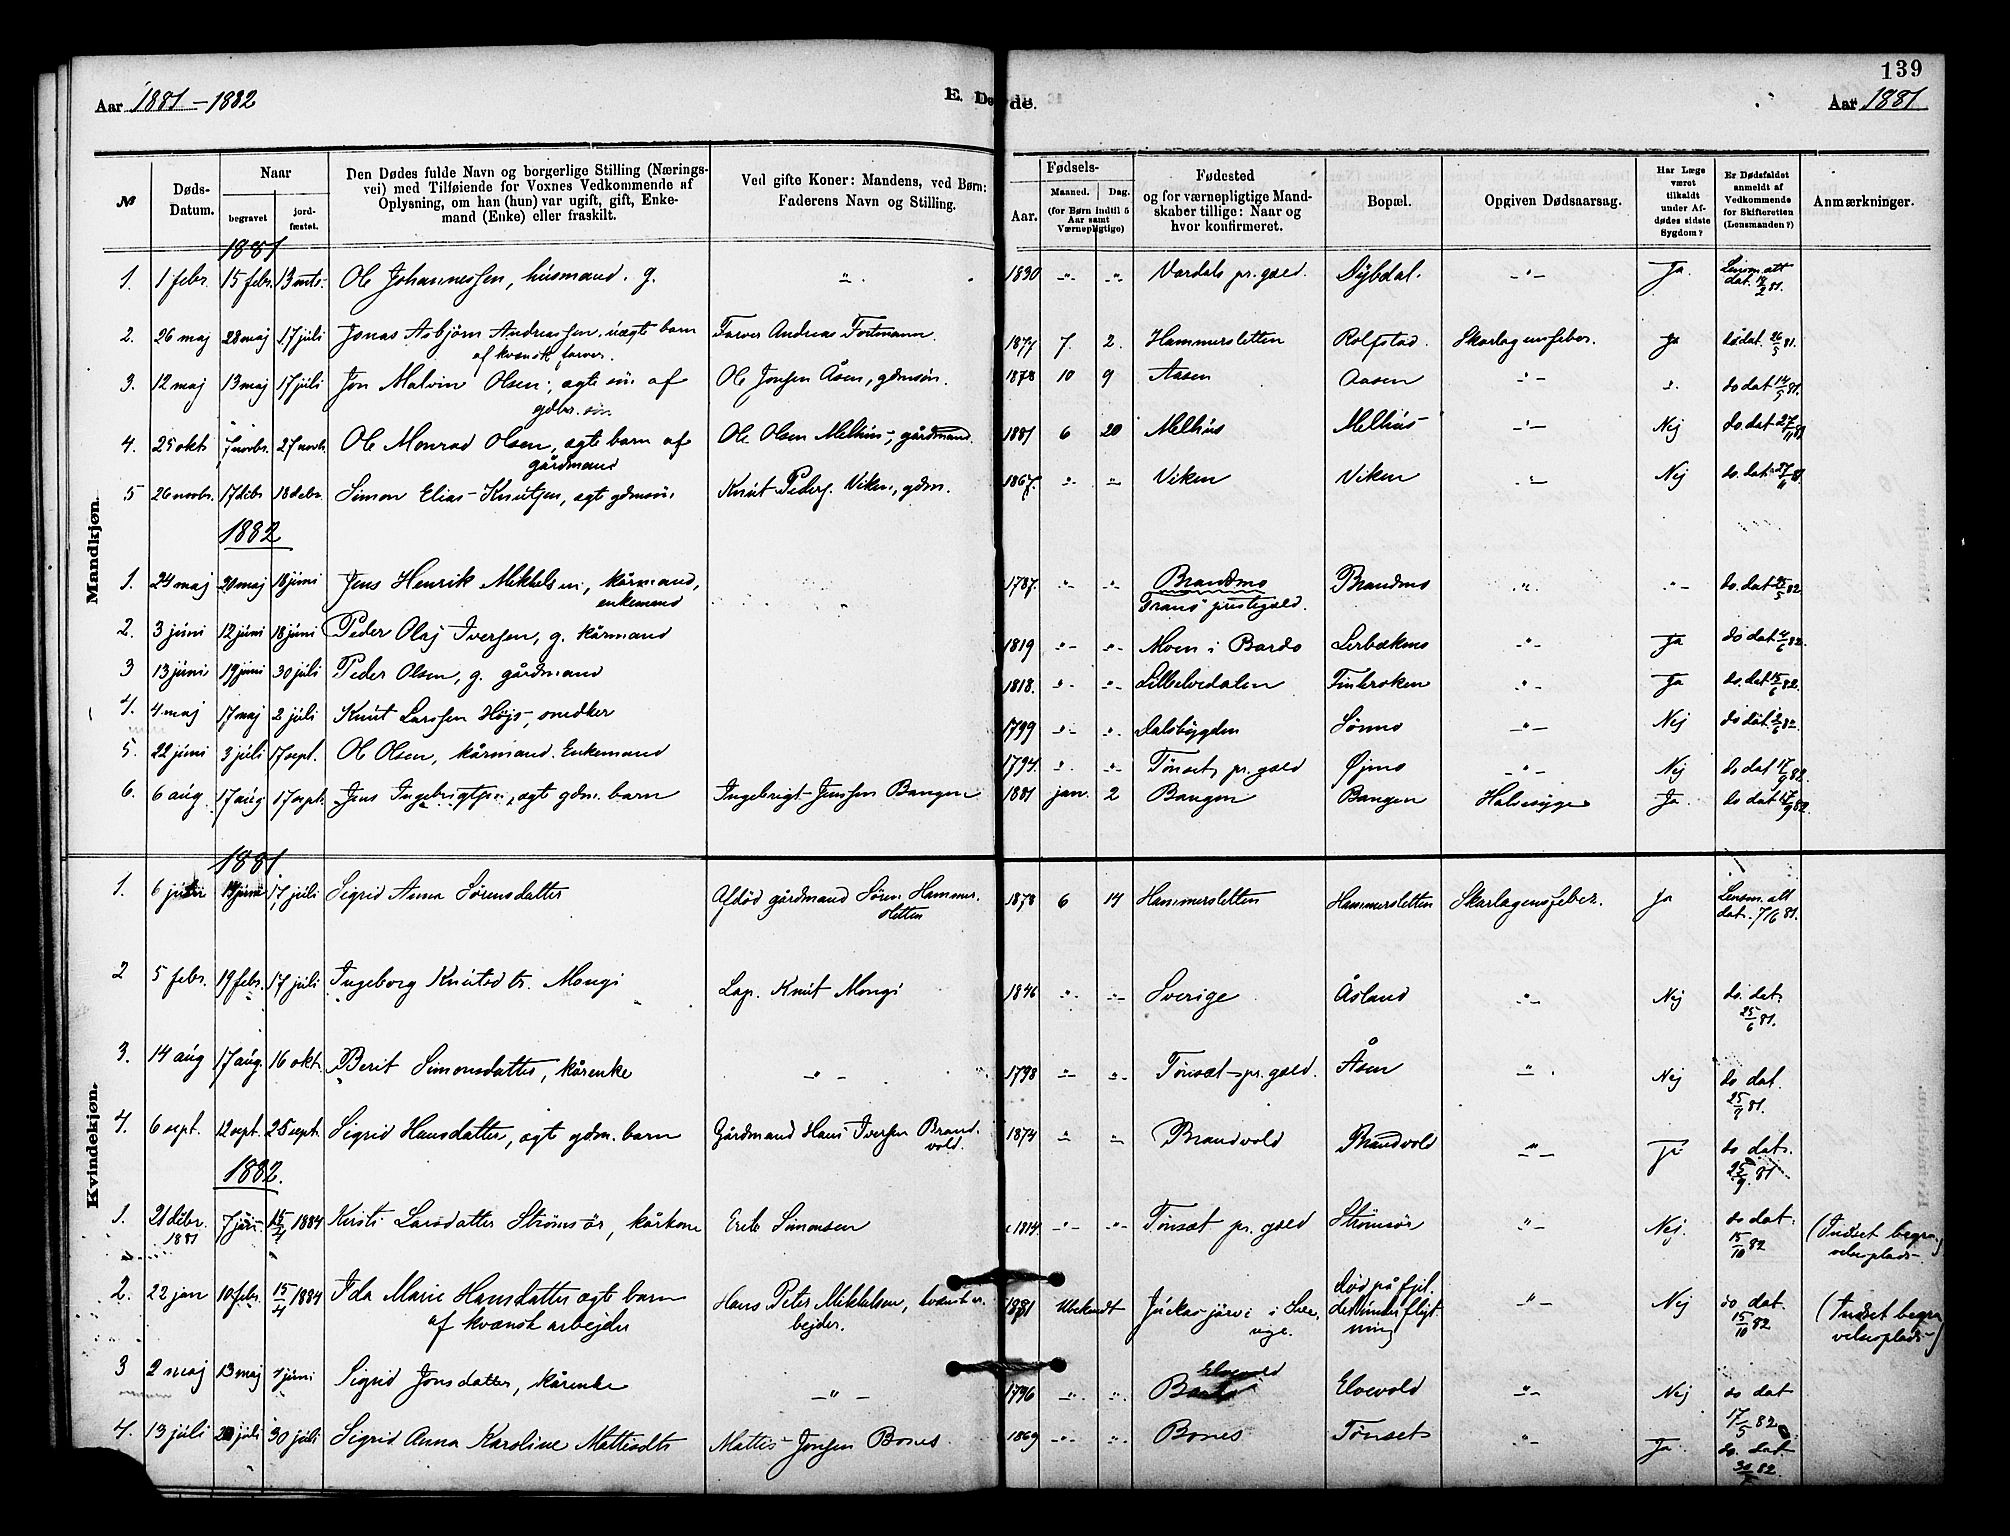 139
Aar 1881-1882 E. Døde. Aar 1881
Mandkjøn.
Kvindekjøn.
№ Døds-Datum. Naar begravet jordfæstet. Den Dødes fulde Navn og borgerlige Stilling (Næringsvei) med Tilføiende for Voxnes Vedkommende af Oplysning, om han (hun) var ugift, gift, Enkemand (Enke) eller fraskilt. Ved gifte Koner: Mandens, ved Børn: Faderens Navn og Stilling. Fødsels- Aar. Maaned. Dag. (for Børn indtil 5 Aar samt Værnepligtige) Fødested og for værnepligtige Mandskaber tillige: Naar og hvor konfirmeret. Bopæl. Opgiven Dødsaarsag. Har Læge været tilkaldt under Afdødes sidste Sygdom? Er Dødsfaldet anmeldt af Vedkommende for Skifteretten (Lensmanden?) Anmærkninger.
1881
1. 1 febr. 15 febr. 13 mts. Ole Johannessen, husmand. g. -"- 1830 -"- -"- Vardals pr.gæld. Nybdal. -"- Ja. Lensm. att dat. 12/2 81.
2. 26 maj 28 maj 17 juli Jonas Asbjørn Andreassen. uægte barn Farver Andreas Fortmann. 1877 7 2. Hammersletten Rolfstad. Skarlagensfeber. Ja do dat. 26/5 81.
af kvænsk farver.
3. 12 maj 13 maj 17 juli Jon Malvin Olsen, ægte søn af Ole Jonsen Åsen, gdmsøn. 1878 10 9 Aasen Aasen -"- -"- do dat 14/5 81.
gdbr. søn
4. 25 okt 7 novbr. 27 novb. Ole Monrad Olsen, ægte barn af Ole Olsen Melhus, gårdmand. 1881 6 20 Melhus Melhus -"- Nej do. dat 27/11 81
gårdmand
5 26 novbr. 17 debr 18 debr. Simon Elias Knutsen, ægt gdmsøn Knut Peders. Viken, gdm. 1867. -"- -"- Viken Viken -"- Nej do. dat 27/11 81.
1882
1. 24 maj 20 maj 18 juni Jens Henrik Mikkelsen, kårmand, 1787. -"- -"- Brandmo Brandmo -"- -"- do. dat 25/5 82
enkemand Tranø prestegæld.
2. 3 juni 12 juni 18 juni Peder Olaj Iversen, g. kårmand 1819 -"- -"- Moen i Bardo Lerbækmo -"- Ja do dat 4/6 82.
3 13 juni 19 juni 30 juli Peder Olsen, g. gårdmand 1818. -"- -"- Lilleelvedalen Finkroken -"- Ja do. dat 15/6 82.
4. 4 maj 17 maj 2 juli Knut Larssen Højs, snedker 1799 -"- -"- Dalsbygden Sønmo -"- Nej do dat. 2/6 82
5. 22 juni 3 juli 17 sept. Ole Olsen, kårmand. Enkemand 1794. -"- Tønset pr. gæld Øjmo -"- Nej do dat 17/9 82
6. 6 aug. 17 aug 17 sept. Jens Ingebrigtsen, ægt gdm. barn Ingebrigt Jenssen Bangen 1881 jan. 2 Bangen Bangen Halssyge Ja. do dat 17/9 82
1881
1. 6 juni 14 juni 17 juli Sigrid Anna Sørensdatter Afdød gårdmand Søren Hammer- 1878 6 14 Hammersletten Hammersletten Skarlagensfeber. Ja Lensm. att dat. 7/6 81.
sletten
2 5 febr. 19 febr. 17 juli Ingeborg Knutsdtr. Mongi Lap. Knut Mongi 1846 -"- -"- Sverige Åsland -"- Nej do. dat. 25/6 81.
3. 14 aug 17 aug. 16 okt. Berit Simonsdatter, kårenke -"- 1798 -"- -"- Tønsæt pr. gæld. Åsen -"- Nej do dat. 25/9 81.
4. 6 sept. 12 sept. 25 sept. Sigrid Hansdatter, ægt gdm. barn Gårdmand Hans Iversen Brand- 1874 -"- -"- Brandvold Brandvold -"- Ja do dat. 25/9 81
vold.
1882.
1. 21 debr. 1881 7 jan 15/4 1884 Kirsti Larsdatter Strømsør, kårkone Erik Simonsen 1814. -"- -"- Tønsæt pr. gæld Strømsør -"- Nej. do dat. 15/10 82 (Indset begra-
velsesplads)
2. 22 jan 10 febr. 15/4 1884 Ida Marie Hansdatter ægte barn Hans Peter Mikkelsen, kvænsk ar- 1881 Ubekendt Juckasjärvi i Sve- Død på fjel- -"- Nej do dat. 15/10 82 (Indset begra-
af kvænsk arbejder bejder. rige. det under flyt- velsesplads)
ning
3 2 maj 13 maj 4 juni Sigrid Jonsdatter, kårenke -"- 1796 -"- -"- Elvevold Elvevold -"- Nej do dat 17/5 82
4. 13 juli juli 30 juli Sigrid Anna Karoline Mattisdtr Mattis Jonsen Bones 1869 -"- -"- Bones Tønset -"- Ja do. dat 82.